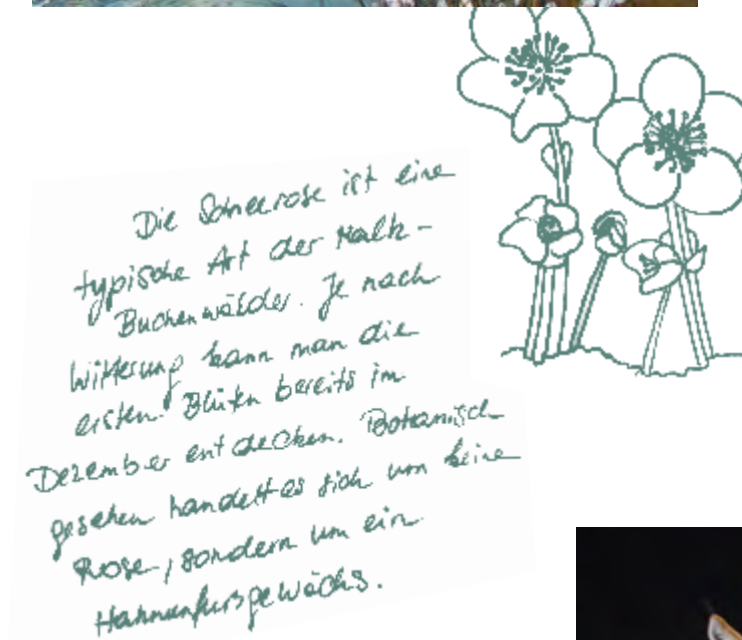 Die Schneerose ist eine
typische Art der Kalk-
Buchenwälder. Je nach
Witterung kann man die
ersten Blüten bereits im
Dezember entdecken. Botanisch
gesehen handelt es sich um keine
Rose, sondern um ein
Hahnenfussgewächs.